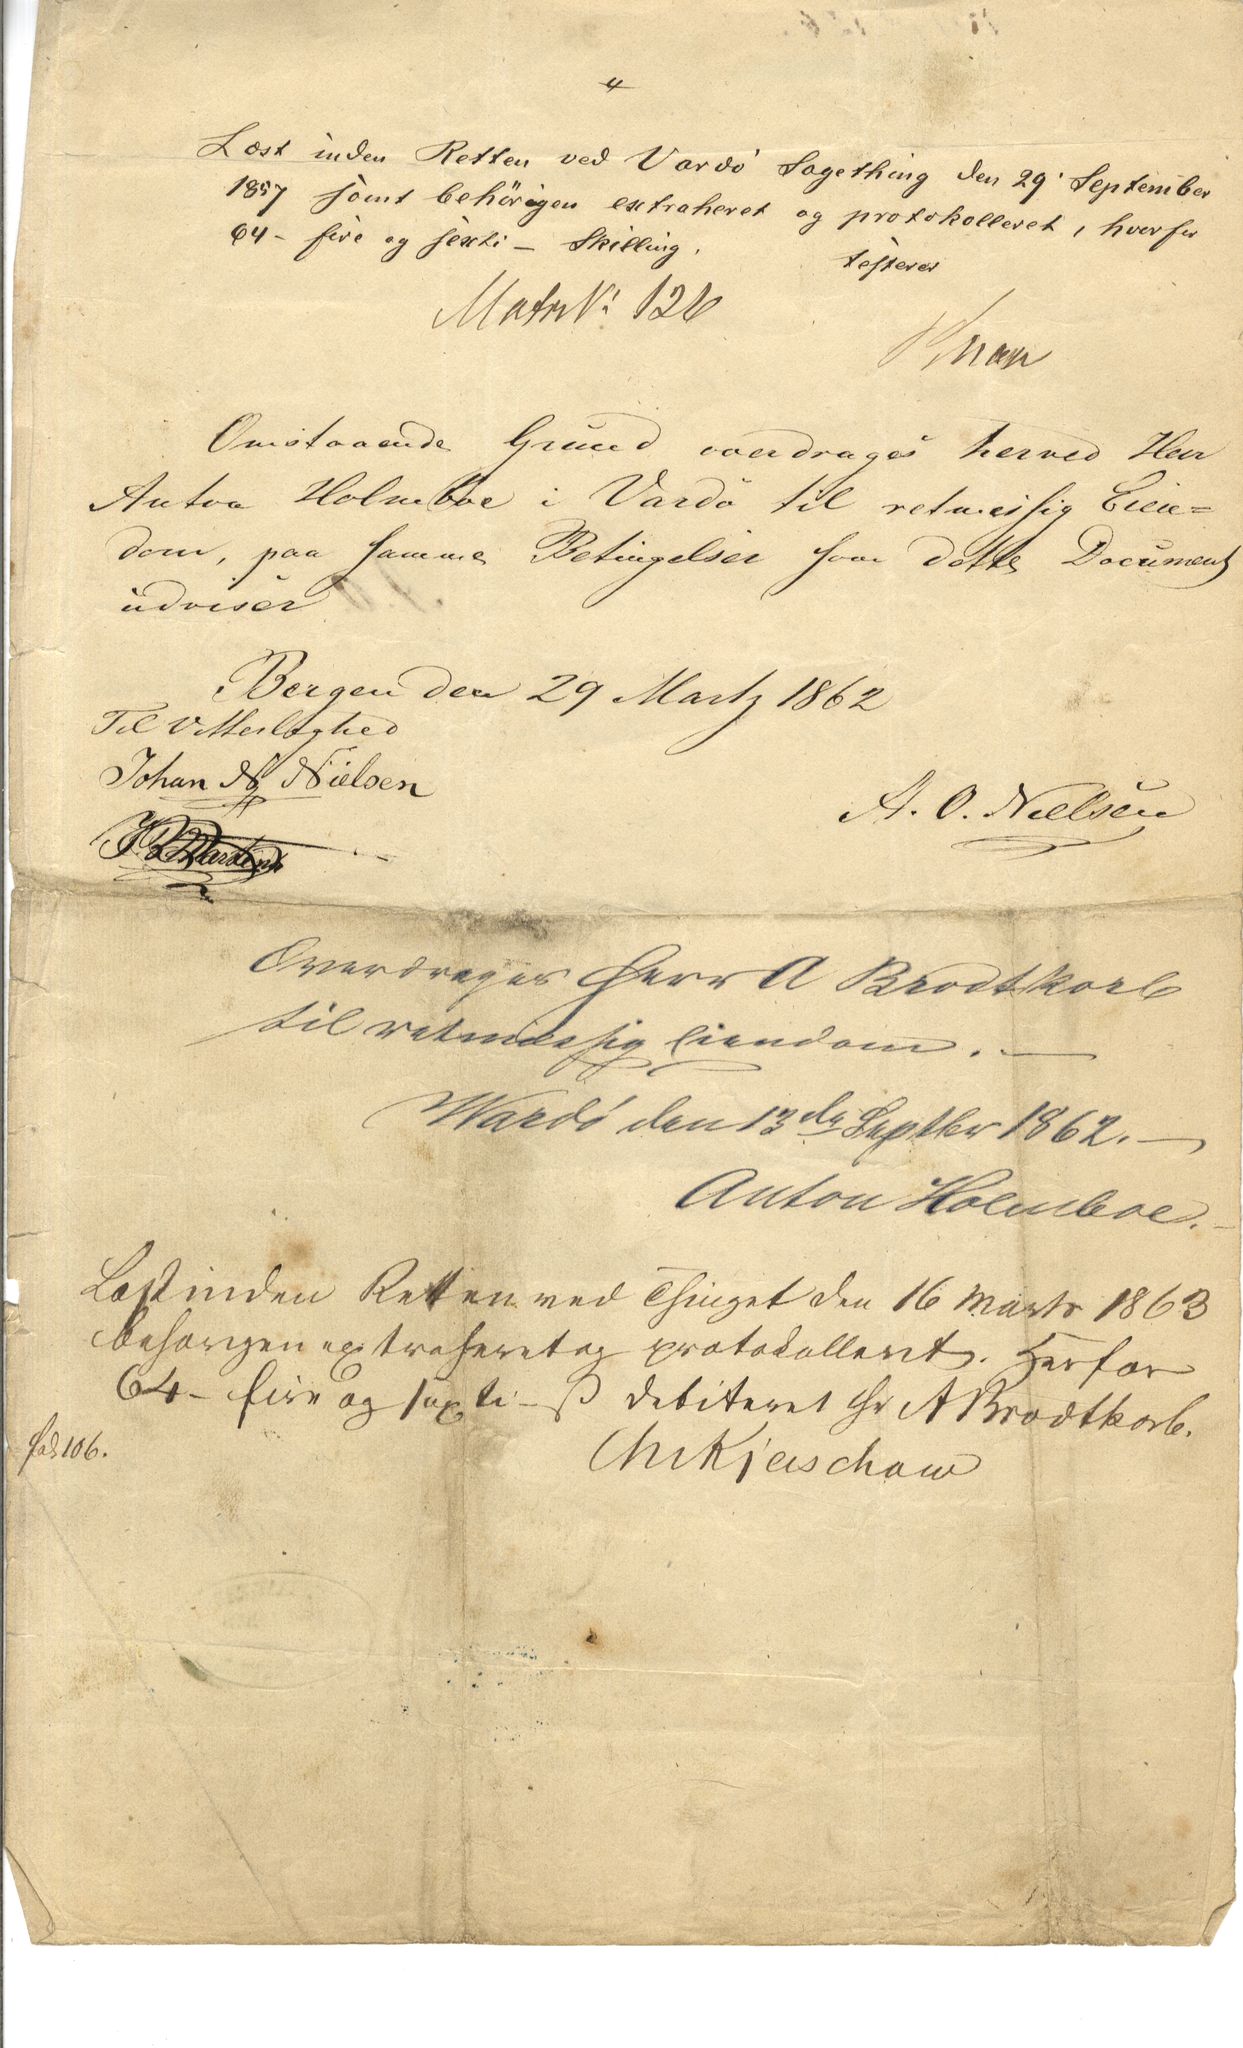 4
Læst inden Retten ved Vardö Sagething den 29' September
1857 samt behörigen extraheret og protokolleret, hvorfor
64 - fire og sexti - Skilling.
testerer
Matr N: 126
Omstaaende Grund overdrages herved Herr
Anton Holmboe i Vardö til retmæssig Eien=
dom, paa samme Betingelser som dette Document
udviser
Bergen den 29 Martz 1862
Til Vitterlighed
Johan N Nielsen
A. O. Nielsen
Overdrages Herr A Brodtkorb
til retmæssig Eiendom. —
Wardö den 13de Septbr 1862. —
Anton Holmboe. -
Læst inden Retten ved Thinget den 16 Marts 1863
behörigen extraheret og protokolleret. Herfor
64 - fire og sexti - ß debiteret Hr A Brodtkorb.
fol 106.
Kjerschow